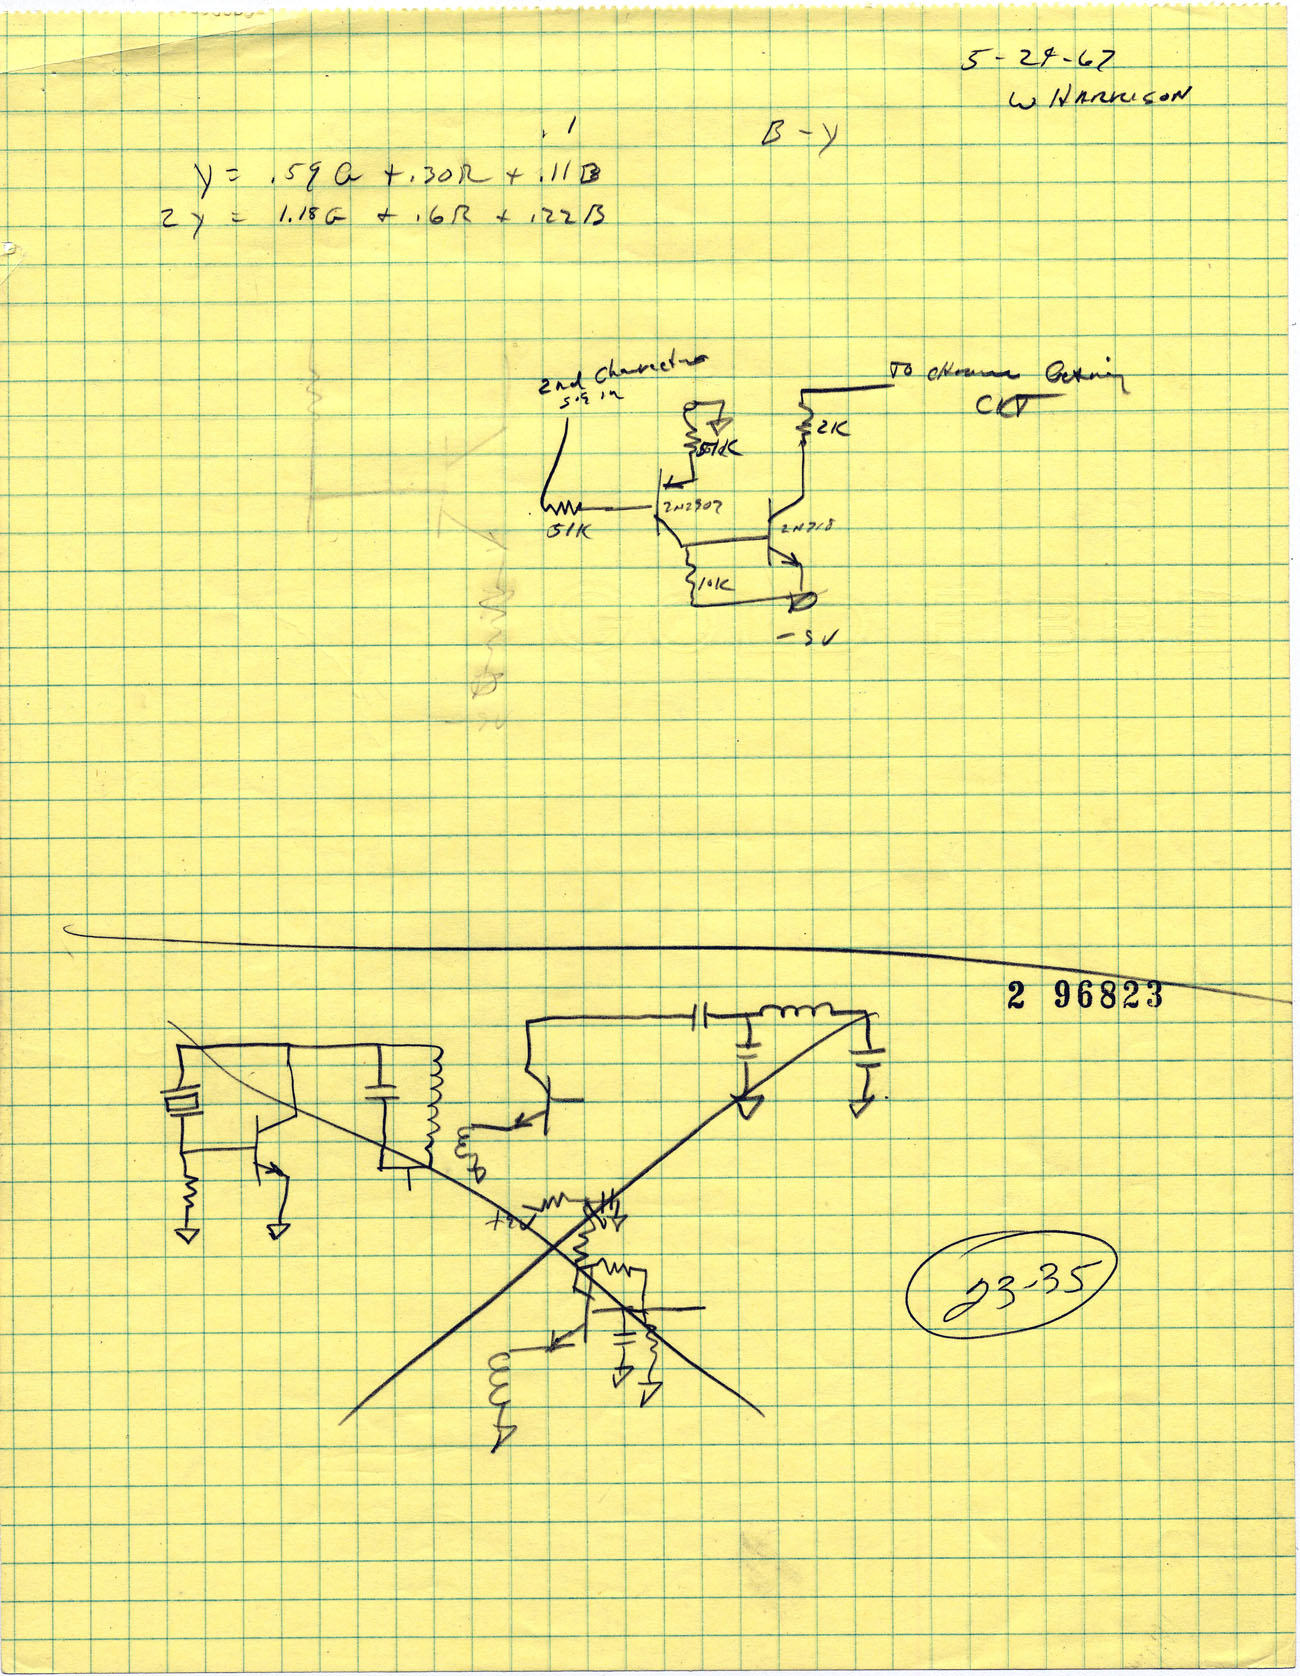 5-24-67
W HARRISON
.1
B-Y
Y = .59G + .30R + .11B
2Y = 1.18G + .6R + .22B
2nd Character
sig in
TO Chroma
CKT
2K
51K
2N2907
2N718
10K
-9V
2 96823
23-35